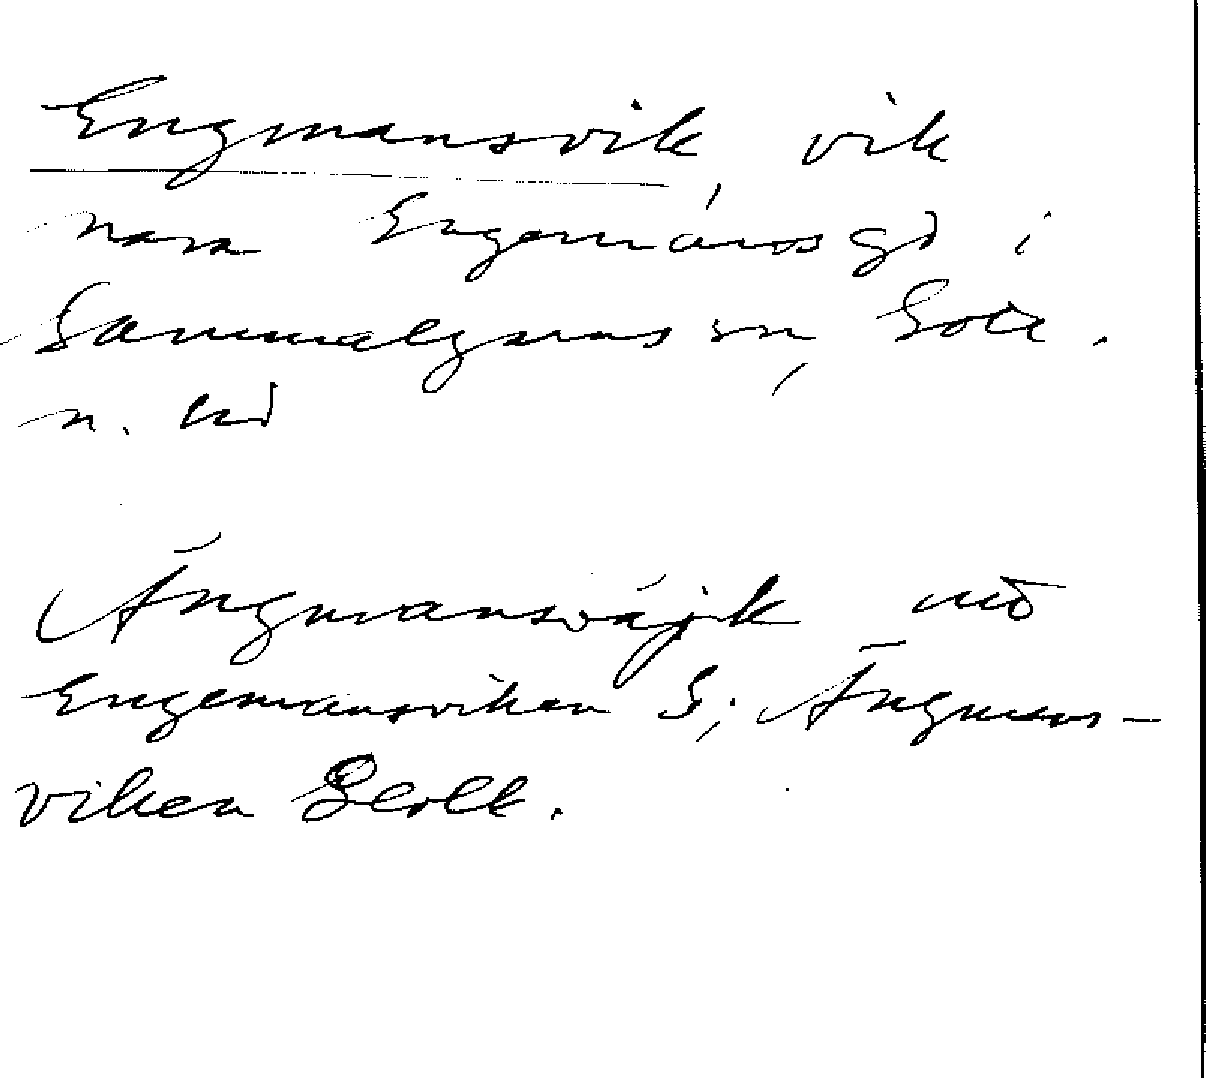 Engmansvik, vik
nära Engemans gd i
Gammalgarns sn, Gotl.
n. hd
Ängmansväjk
Engemansviken S; Ängmans-
viken